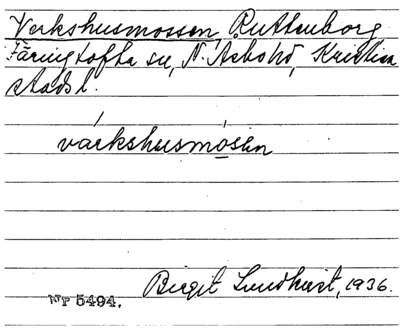 Verkshusmossen, Ruttenborg
Färingtofta sn, N. Åsbo hd, Kristian
stads l.
várkshusmósen
Birgit Lundkvist, 1936.
Nr 5494.